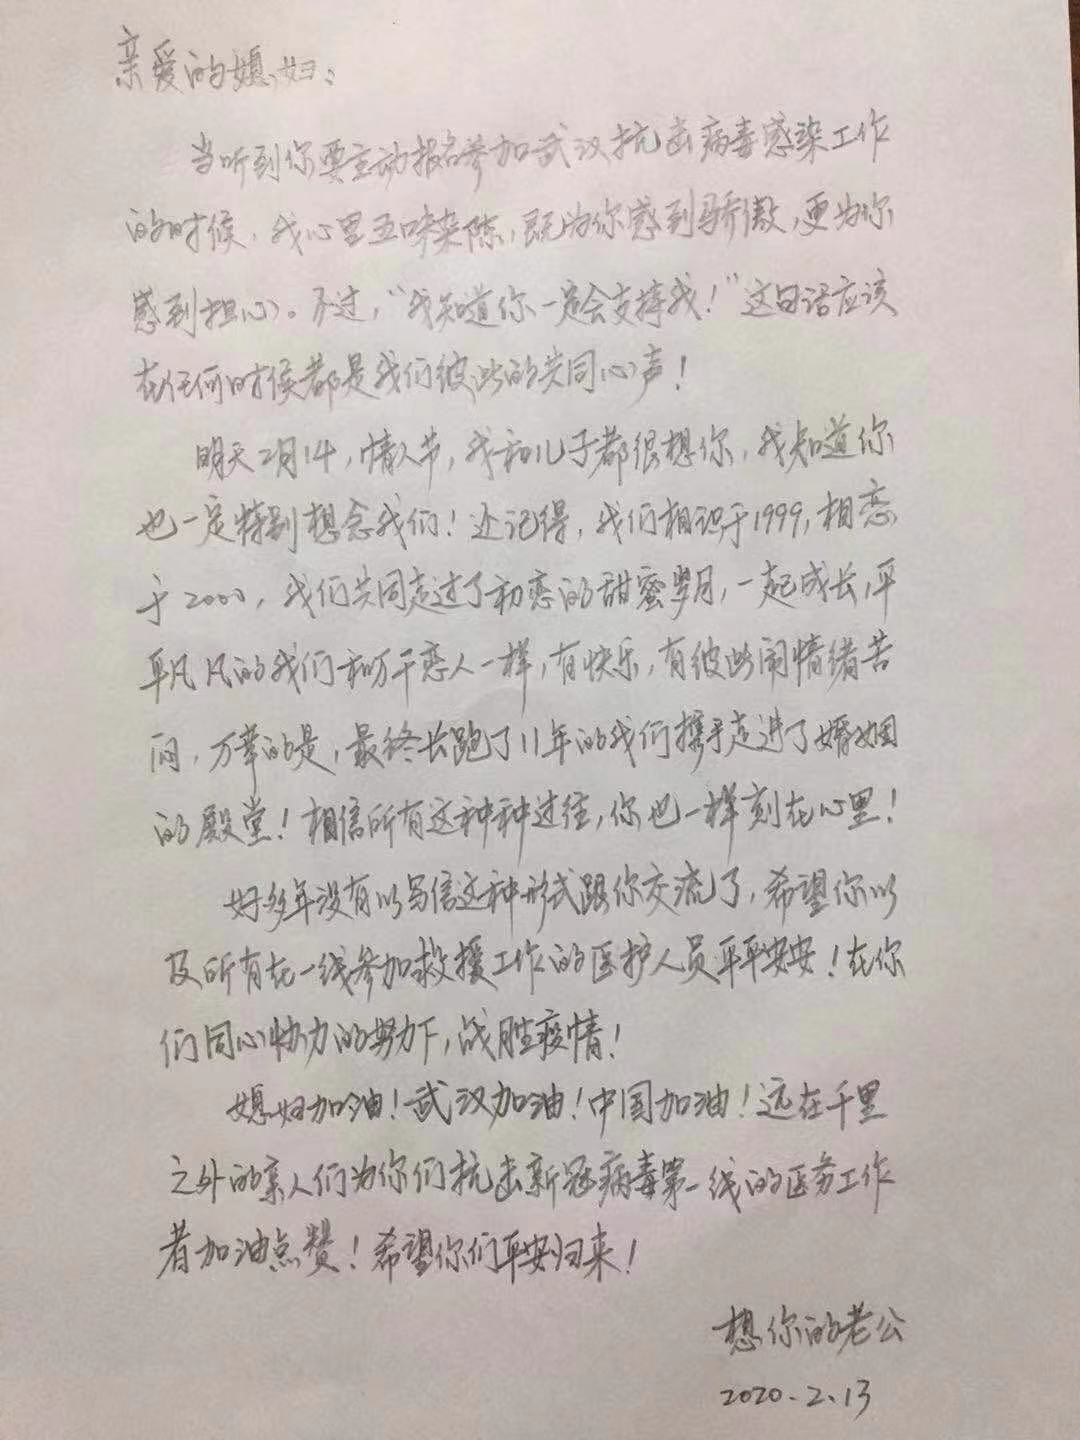 亲爱的媳妇:
当听到你要主动报名参加武汉抗击病毒感染工作
的时候,我心里五味杂陈,既为你感到骄傲,更为你
感到担心。不过,“我知道你一定会支持我!”这句话应该
在任何时候都是我们彼此的共同心声!
明天2月14,情人节,我和儿子都很想你,我知道你
也一定特别想念我们!还记得,我们相识于1999,相恋
于2000,我们共同走过了初恋的甜蜜岁月,一起成长,平
平凡凡的我们和万千恋人一样,有快乐,有彼此闹情绪苦
闷,万幸的是,最终长跑了11年的我们携手走进了婚姻
的殿堂!相信所有这种种过往,你也一样刻在心里!
好多年没有以写信这种形式跟你交流了,希望你以
及所有在一线参加救援工作的医护人员平平安安!在你
们同心协力的努力下,战胜疫情!
媳妇加油!武汉加油!中国加油!远在千里
之外的亲人们为你们抗击新冠病毒第一线的医务工作
者加油点赞!希望你们平安归来!
想你的老公
2020.2.13